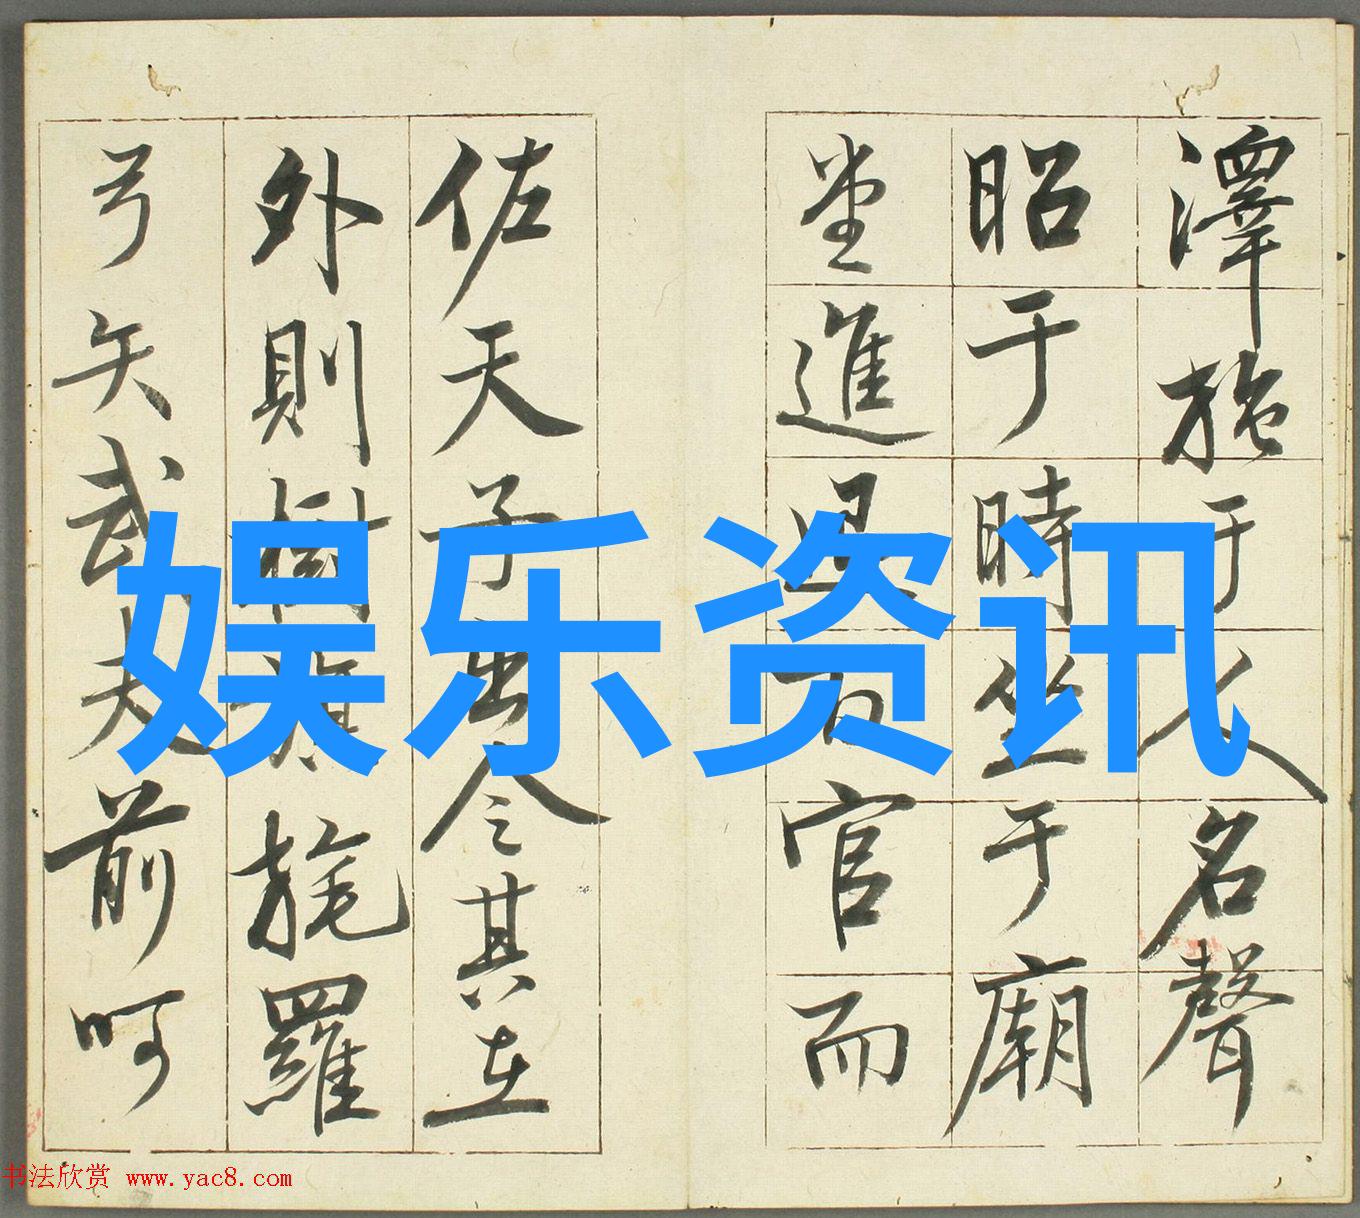 澤施于人名聲
昭于時坐于廟
堂進退百官而
佐天子出令其在
外則樹旗旄羅
弓矢武夫前呵
娱乐资讯
书法欣赏 www.yac8.com